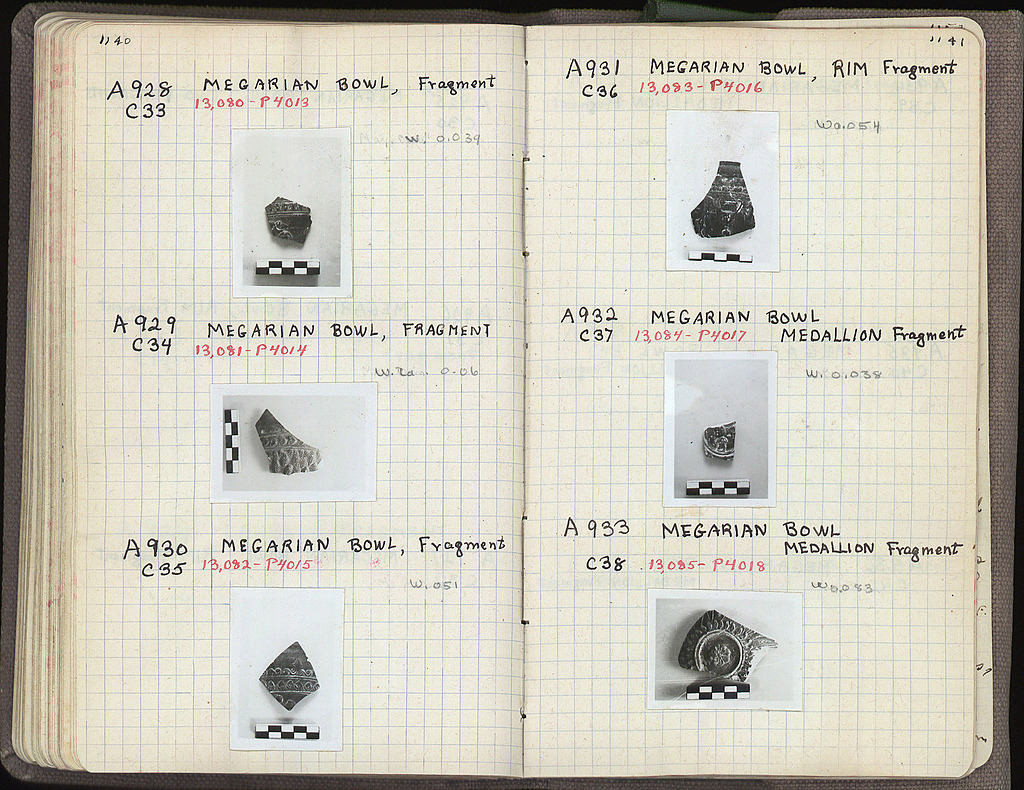 1140
A928 MEGARIAN BOWL, Fragment
C33 13,080-P4013
W. 0.039
A929 MEGARIAN BOWL, FRAGMENT
C34 13,081-P4014
0.06
A930 MEGARIAN BOWL, Fragment
C35 13,082-P4015
W. 051
1141
A931 MEGARIAN BOWL, RIM Fragment
C36 13,083-P4016
W 0.054
A932 MEGARIAN BOWL
C37 13,084-P4017 MEDALLION Fragment
W. 0.038
A933 MEGARIAN BOWL
MEDALLION Fragment
C38 13,085-P4018
W 0.083